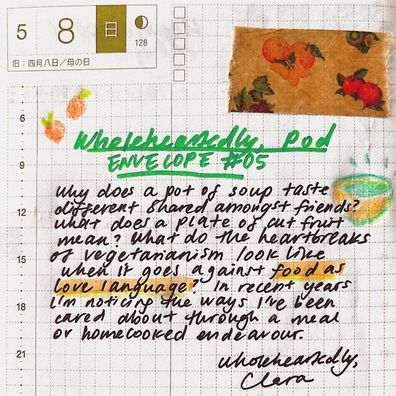 5 8 日
128
旧：四月八日／母の日
6
Wholeheartedly, Pod
ENVELOPE #05
9
why does a pot of soup taste
different shared amongst friends?
what does a plate of cut fruit
12
mean? What do the heartbreaks
of vegetarianism look like
15
when it goes against food as
love language? In recent years
I'm noticing the ways I've been
18
cared about through a meal
or homecooked endeavour.
21
wholeheartedly,
Clara